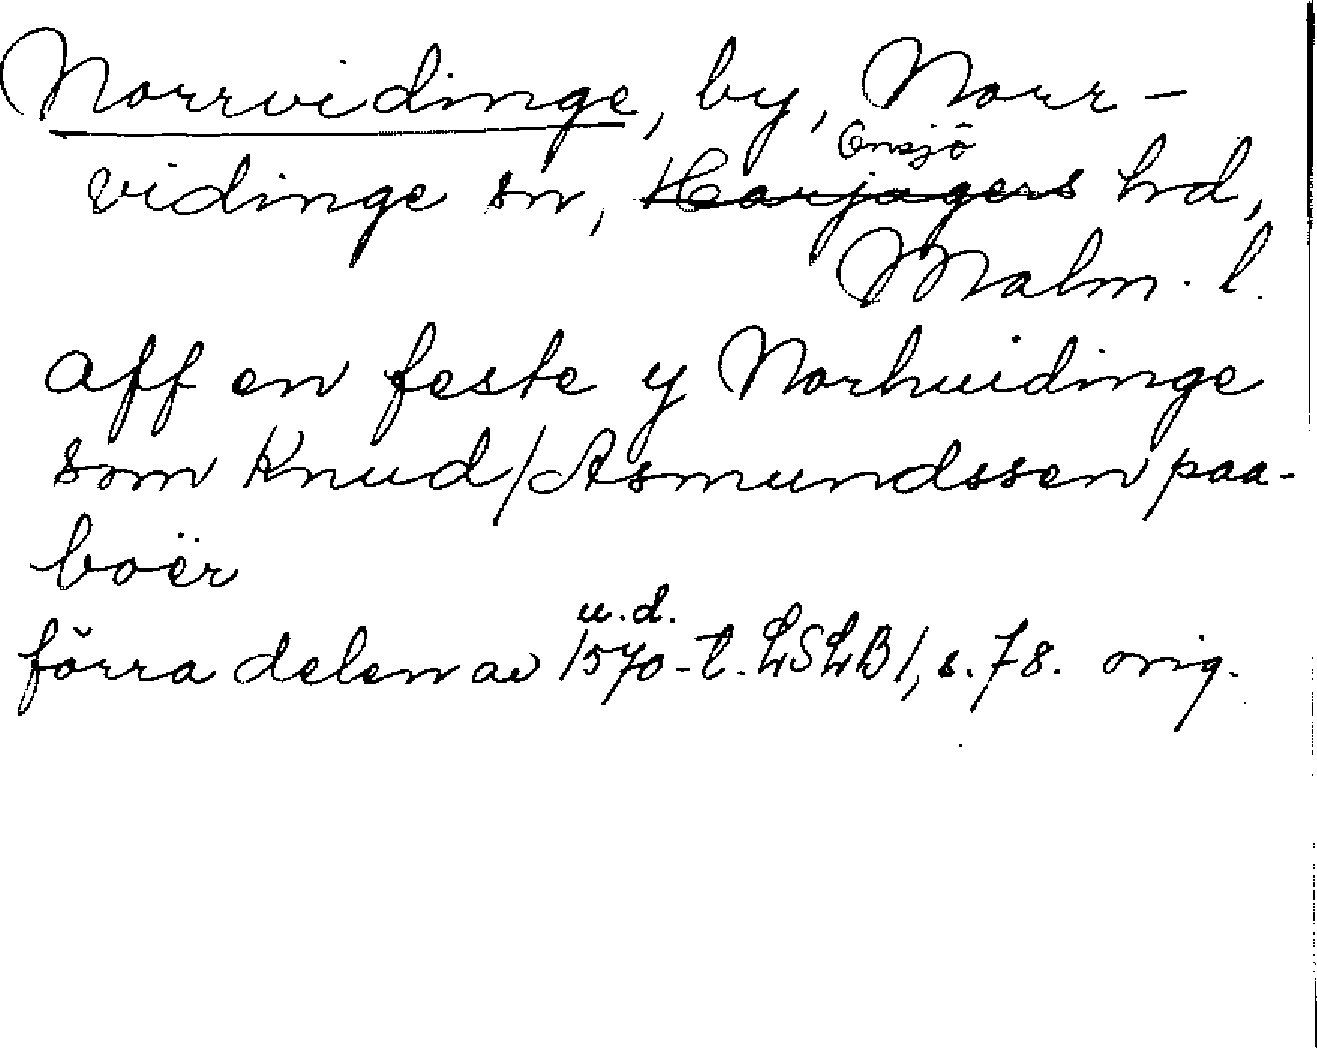 Norrvidinge, by, Norr-
Onsjö
vidinge sn, Harjagers hd,
Malm. l.
aff en feste y Norhuidinge
som Knud / Asmundssen paa-
boër
u.d.
förra delen av 1570-t. LSLB 1, s. 78. orig.